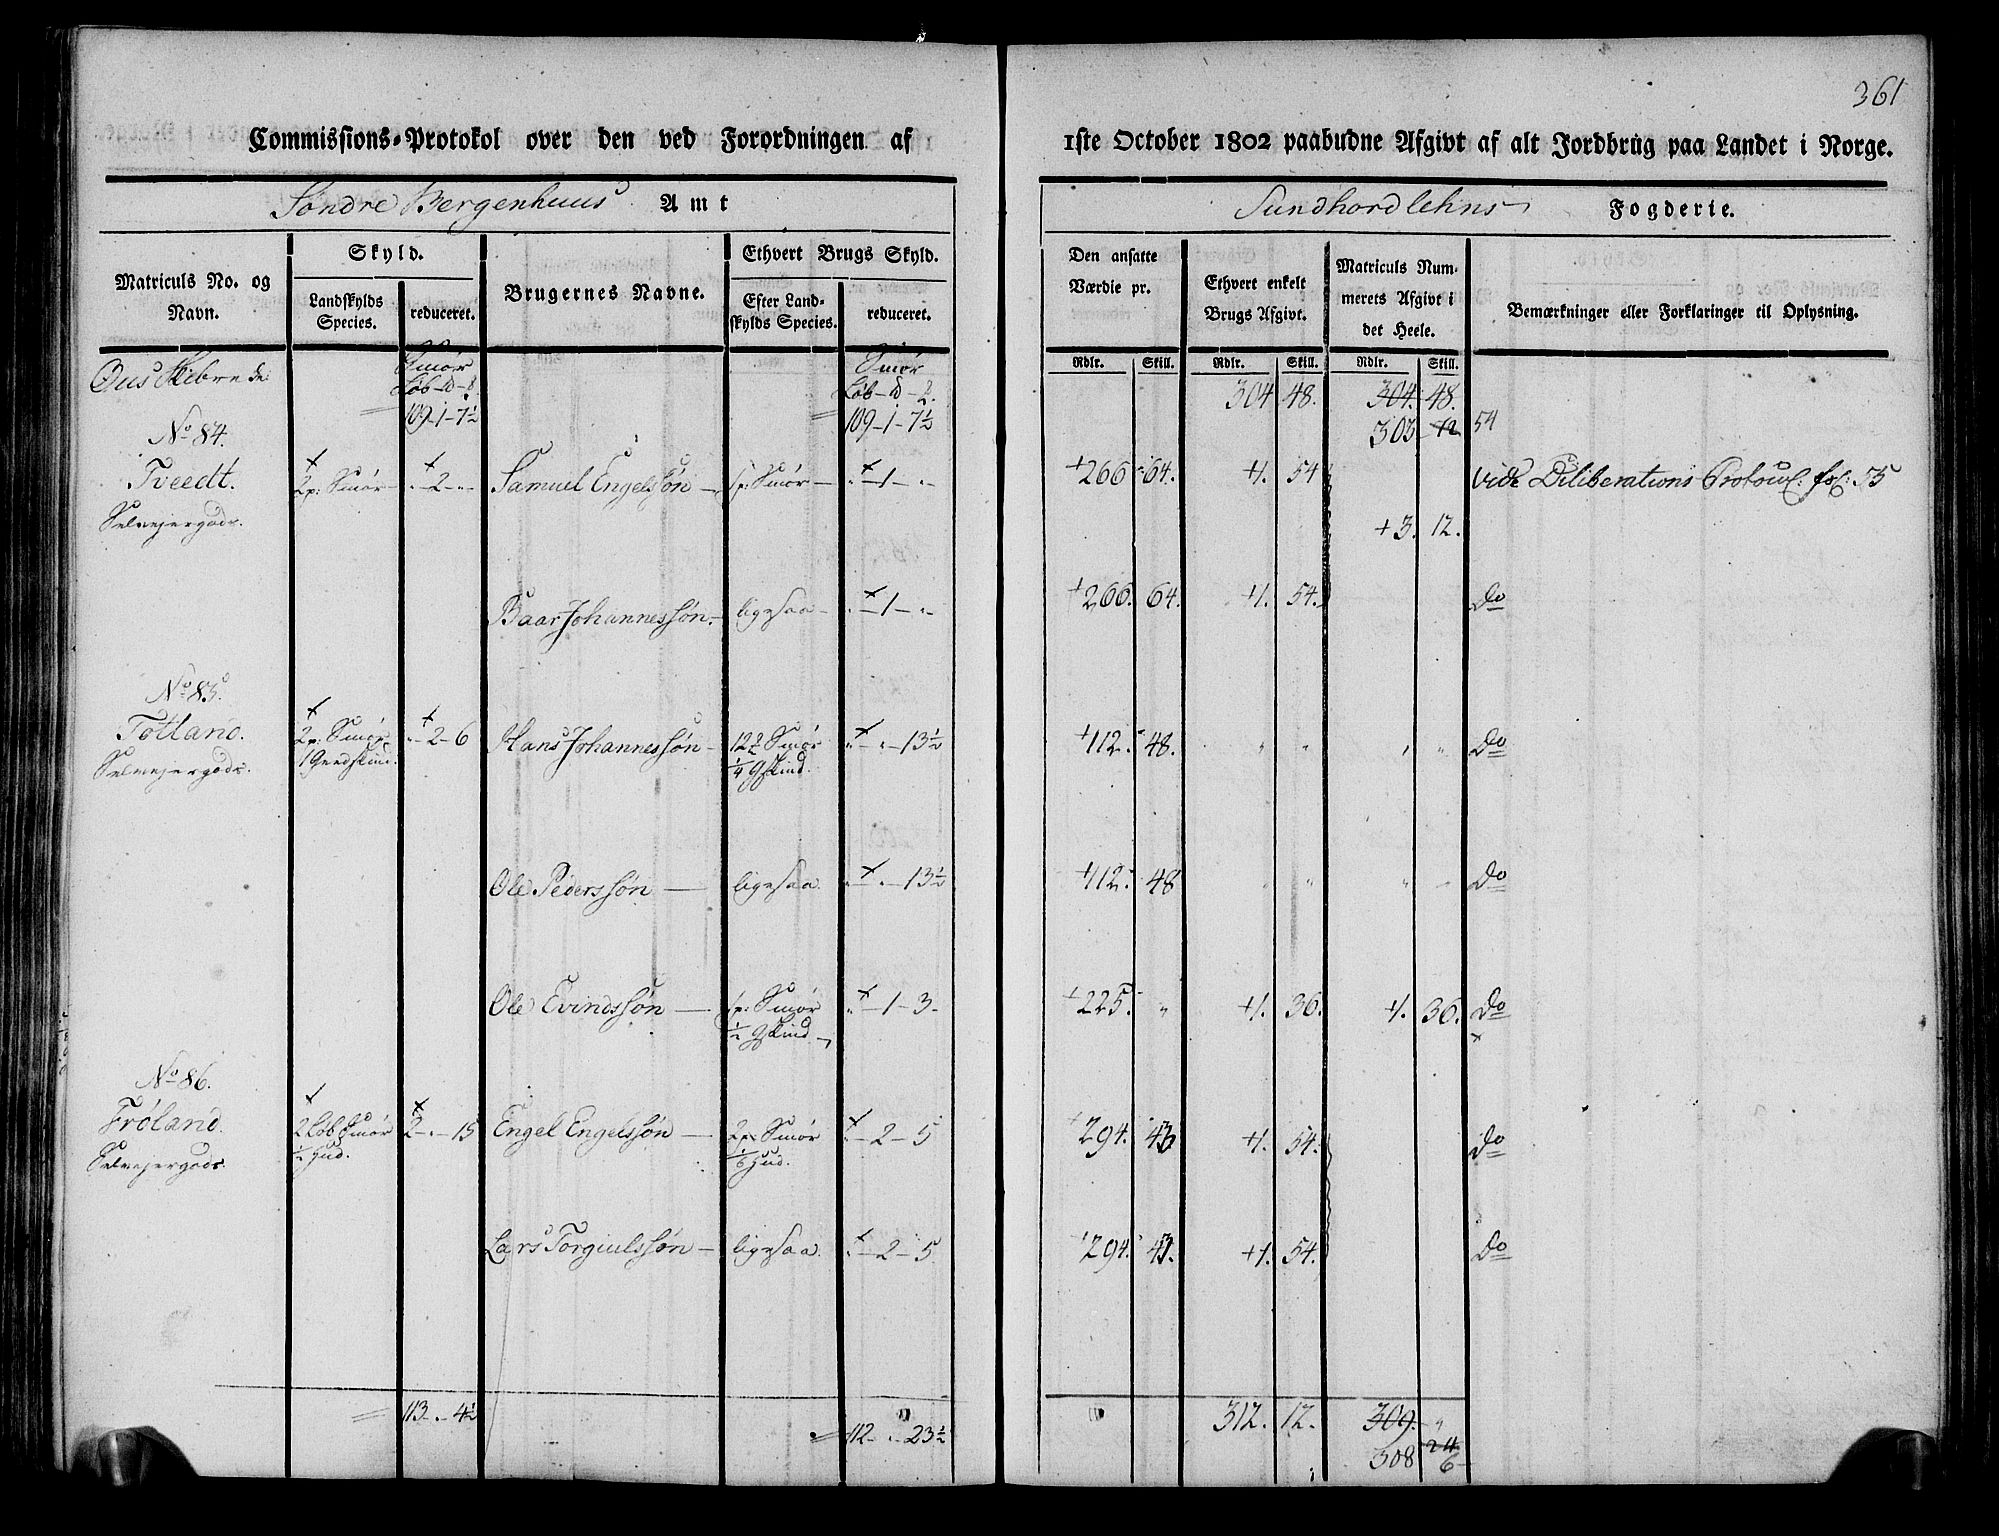 361
Commissions-Protokol over den ved Forordningen af 1ste October 1802 paabudne Afgivt af alt Jordbrug paa Landet i Norge.
Søndre Bergenhuus Amt Sundhordlehns Fogderie.
Matriculs No. og Navn.
Skyld.
Landskylds Species.
reduceret.
Brugernes Navne.
Ethvert Brugs Skyld.
Efter Landskylds Species.
reduceret.
Den ansatte Værdie pr.
Ethvert enkelt Brugs Afgivt.
Matriculs Nummerets Afgivt i det Heele.
Bemærkninger eller Forklaringer til Oplysning.
Rdlr. Skill. Rdlr. Skill. Rdlr. Skill.
Ous Skibrede Smør Smør
Løb 109-1-7½ 109-1-7½ 304 48. 304. 48.
303 12 54
No 84.
Tveedt. 2p: Smør - 2 - Samuel Engelssøn 1p: Smør - 1 - +266 64. +1. 54 Vide Diliberations Protocol: fol: 35
Selvejergods. +3. 12.
Baar Johannessøn ligesaa - 1 - +266. 64. +1. 54. Do
No 85.
Totland. 2p: Smør - 2 - 6 Hans Johannessøn 12 Smør - 13½ +112. 48. Do
Selvejergods. 1 Geedskind. ¼ Gskind.
Ole Pederssøn ligesaa. - 13½ +112. 48 Do
Ole Evindssøn 1p: Smør - 1 - 3. +225. " +1. 36. +1. 36. Do
½ Gskind
No 86.
Frøland. 2 Løb Smør 2 - 15 Engel Engelssøn 2p Smør - 2 - 5 +294. +1. 54. Do
Selvejergods ½ Hud. 1/6 Hud.
Lars Torgiulssøn ligesaa. - 2 - 5. 294. +1. 54. Do
113 - 4½ 112 - 23½ 312. 12. 309. "
24
308 6